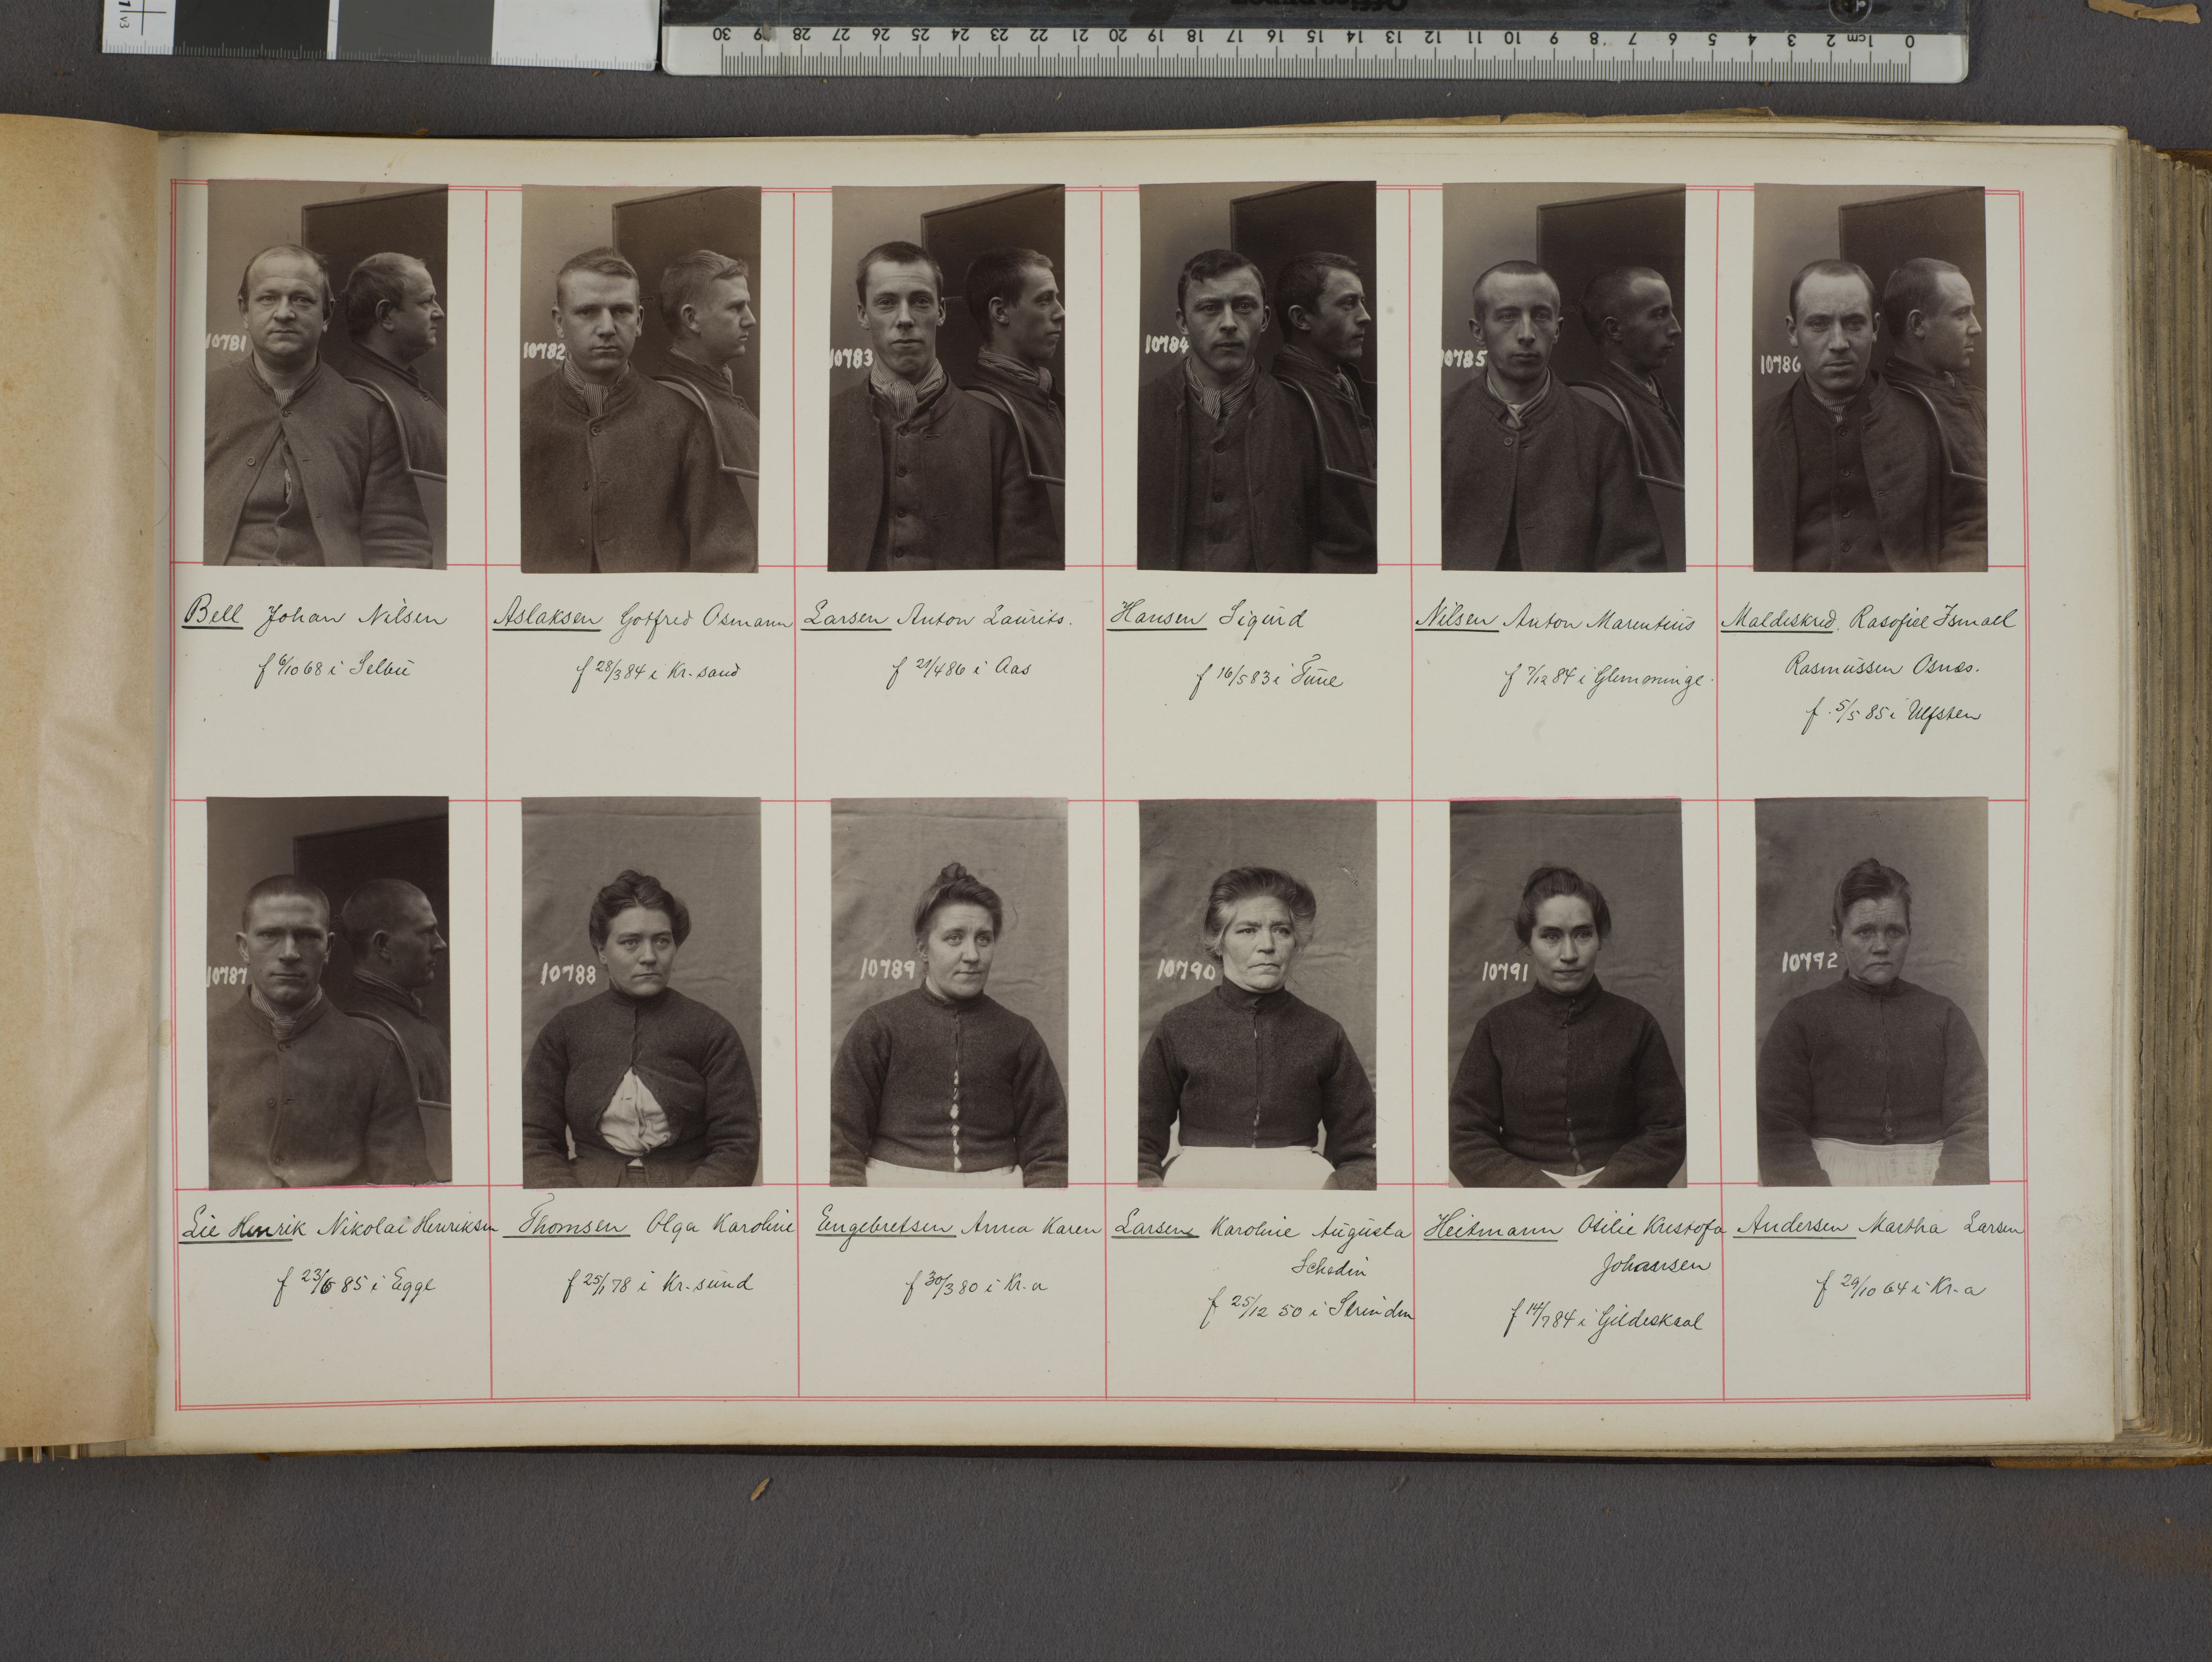 30 29 28 27 26 25 24 23 22 21 20 19 18 17 16 15 14 13 12 11 10 9 8 7 6 5 4 3 2 1cm 0
10781
10782
10783
10784
10785
10786
Bell Johan Nilsen
f 6/10 68 i Selbu
Aslaksen Gotfred Osmann
f 28/3 84 i Kr.sand
Larsen Anton Laurits.
f 21/4 86 i Aas
Hansen Sigurd
f 16/5 83 i Tune
Nilsen Anton Marentius
f 7/12 84 i Glemminge.
Maldeskred. Rasofiel Ismael
Rasmussen Osnæs.
f. 5/5 85 i Ulfsten
10787
10788
10789
10790
10791
10792
Lie Henrik Nikolai Henriksen
f 23/6 85 i Egge
Thomsen Olga Karoline
f 25/1 78 i Kr.sund
Engebretsen Anna Karen
f 30/3 80 i Kr.a
Larsen Karoline Augusta
Schedin
f 25/12 50 i Strinden
Heitmann Otilie Kristofa
Johansen
f 14/7 84 i Gildeskaal
Andersen Martha Larsen
f 29/10 64 i Kr.a